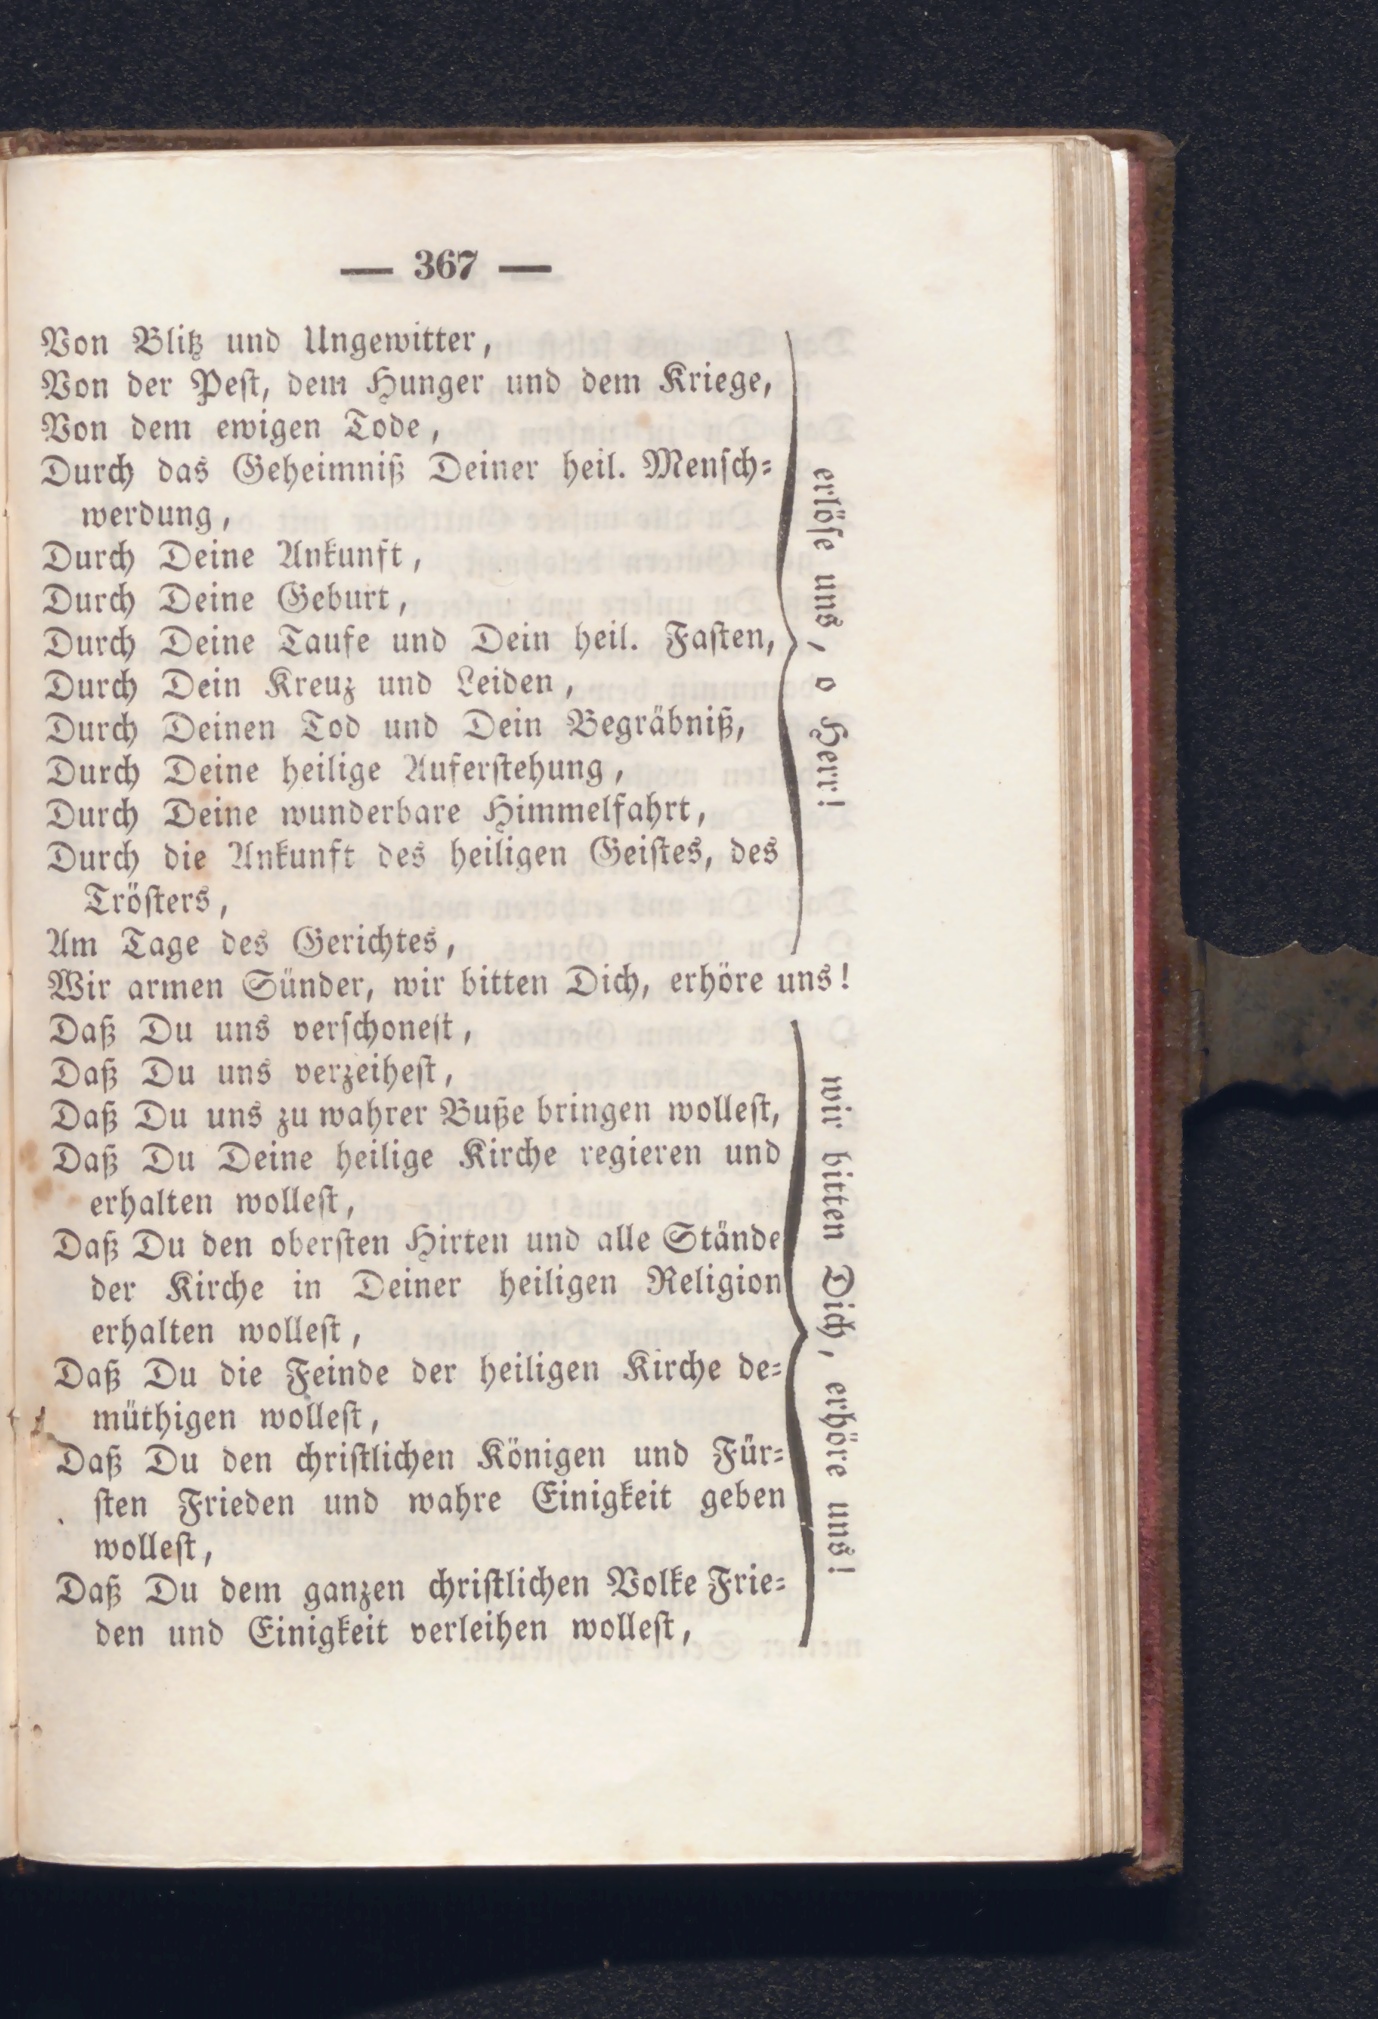 — 367 —
Von Blitz und Ungewitter,
Von der Pest, dem Hunger und dem Kriege,
Von dem ewigen Tode,
Durch das Geheimniß Deiner heil. Mensch-
werdung,
Durch Deine Ankunft,
Durch Deine Geburt,
Durch Deine Taufe und Dein heil. Fasten,
Durch Dein Kreuz und Leiden,
Durch Deinen Tod und Dein Begräbniß,
Durch Deine heilige Auferstehung,
Durch Deine wunderbare Himmelfahrt,
Durch die Ankunft des heiligen Geistes, des
Trösters,
Am Tage des Gerichtes,
erlöse uns, o Herr!
Wir armen Sünder, wir bitten Dich, erhöre uns!
Daß Du uns verschonest,
Daß Du uns verzeihest,
Daß Du uns zu wahrer Buße bringen wollest,
Daß Du Deine heilige Kirche regieren und
erhalten wollest,
Daß Du den obersten Hirten und alle Stände
der Kirche in Deiner heiligen Religion
erhalten wollest,
Daß Du die Feinde der heiligen Kirche de-
müthigen wollest,
Daß Du den christlichen Königen und Für-
sten Frieden und wahre Einigkeit geben
wollest,
Daß Du dem ganzen christlichen Volke Frie-
den und Einigkeit verleihen wollest,
wir bitten Dich, erhöre uns!